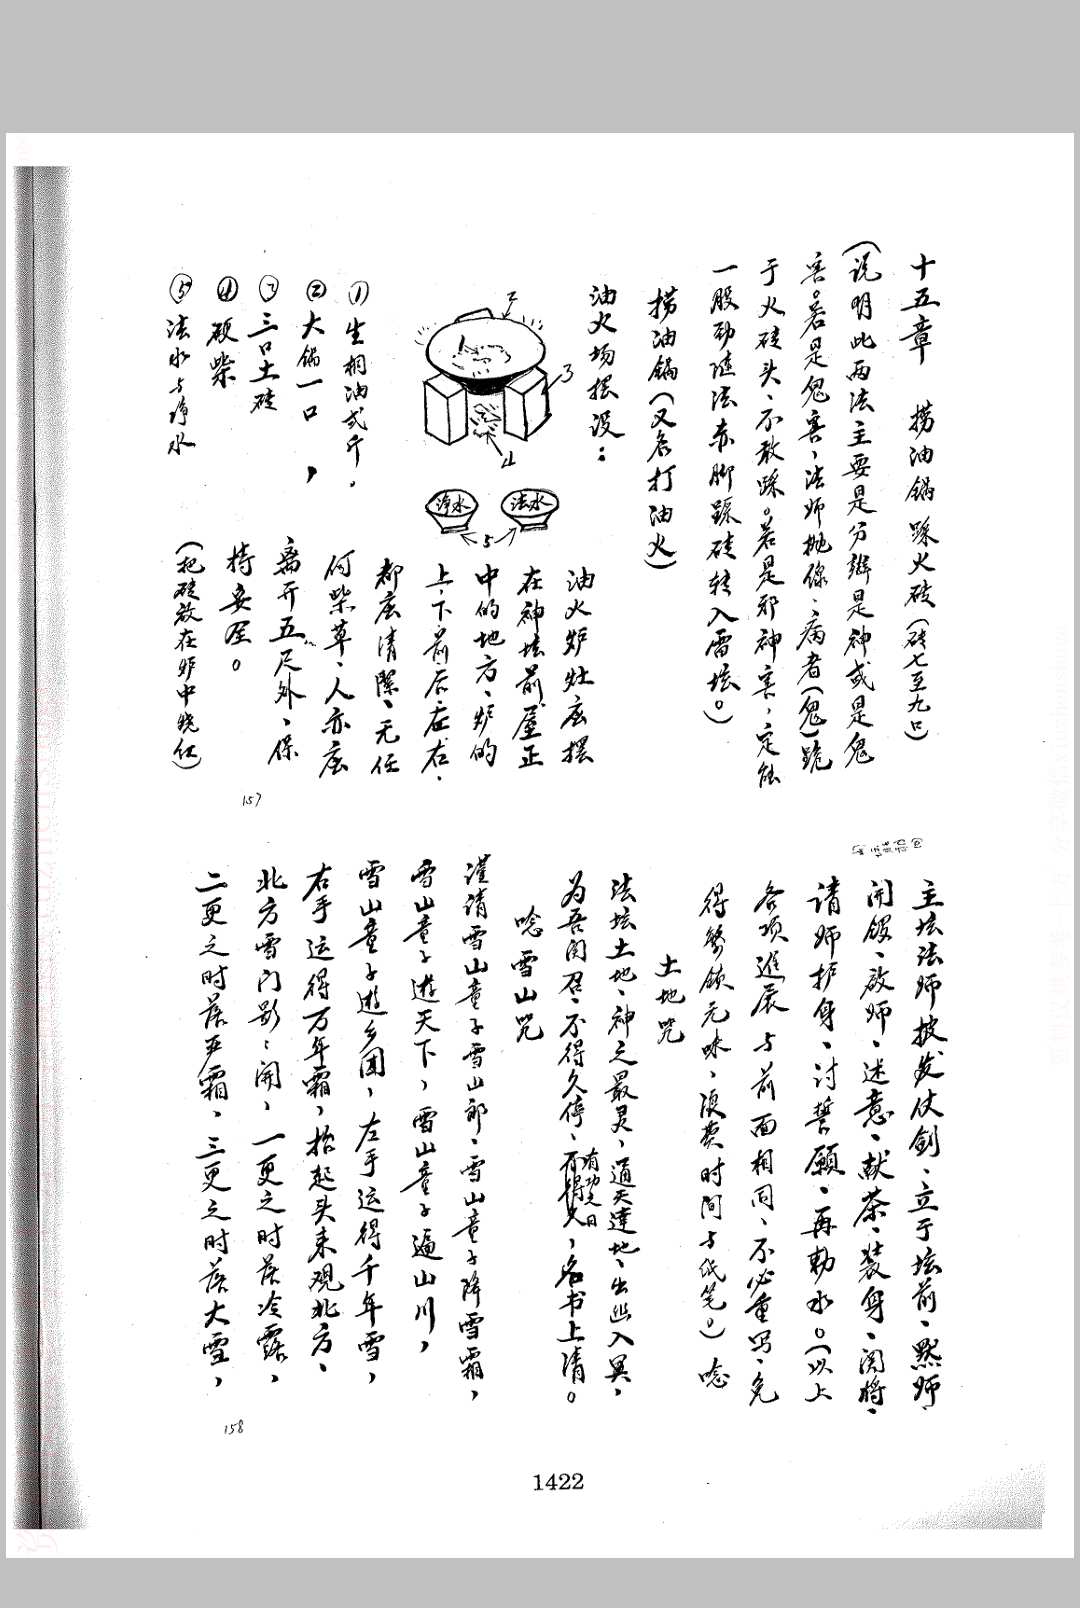 十五章 捞油锅踩火砖(砖七至九口)
(说明此两法主要是分辩是神或是鬼
害。若是鬼害,法师抛保、病者(鬼)跪
于火砖头、不敢踩。若是邪神害,定能
一股劲随法赤脚踩砖转入雷坛。)
捞油锅(又名打油火)
油火场摆设:
2
3
4
净水
法水
5
①生桐油弍斤,
②大锅一口,
③三口土砖
④硬柴
⑤法水与净水
油火炉灶应摆
在神坛前屋正
中的地方、炉的
上、下、前后左右、
都应清除、无任
何柴草、人亦应
离开五尺外、保
持安全。
(把砖放在炉中烧红)
157
主坛法师披发仗剑、立于坛前、默师、
开锣、啟师、述意、献茶、装身、闭将、
请师护身、讨誓愿、再勅水。(以上
各项进展与前面相同、不必重写、免
得繁锁无味,浪费时间与纸笔。)唸
土地咒
法坛土地、神之最灵,通天達地、出幽入冥,
为吾闭召、不得久停、有功之日,名书上清。
唸雪山咒
谨请雪山童子雪山郎、雪山童子降雪霜,
雪山童子遊天下,雪山童子遍山川,
雪山童子遊乡团,左手运得千年雪,
右手运得万年霜,抬起头来观北方、
北方雪门影影开,一更之时落冷露,
二更之时落严霜,三更之时落大雪,
158
1422